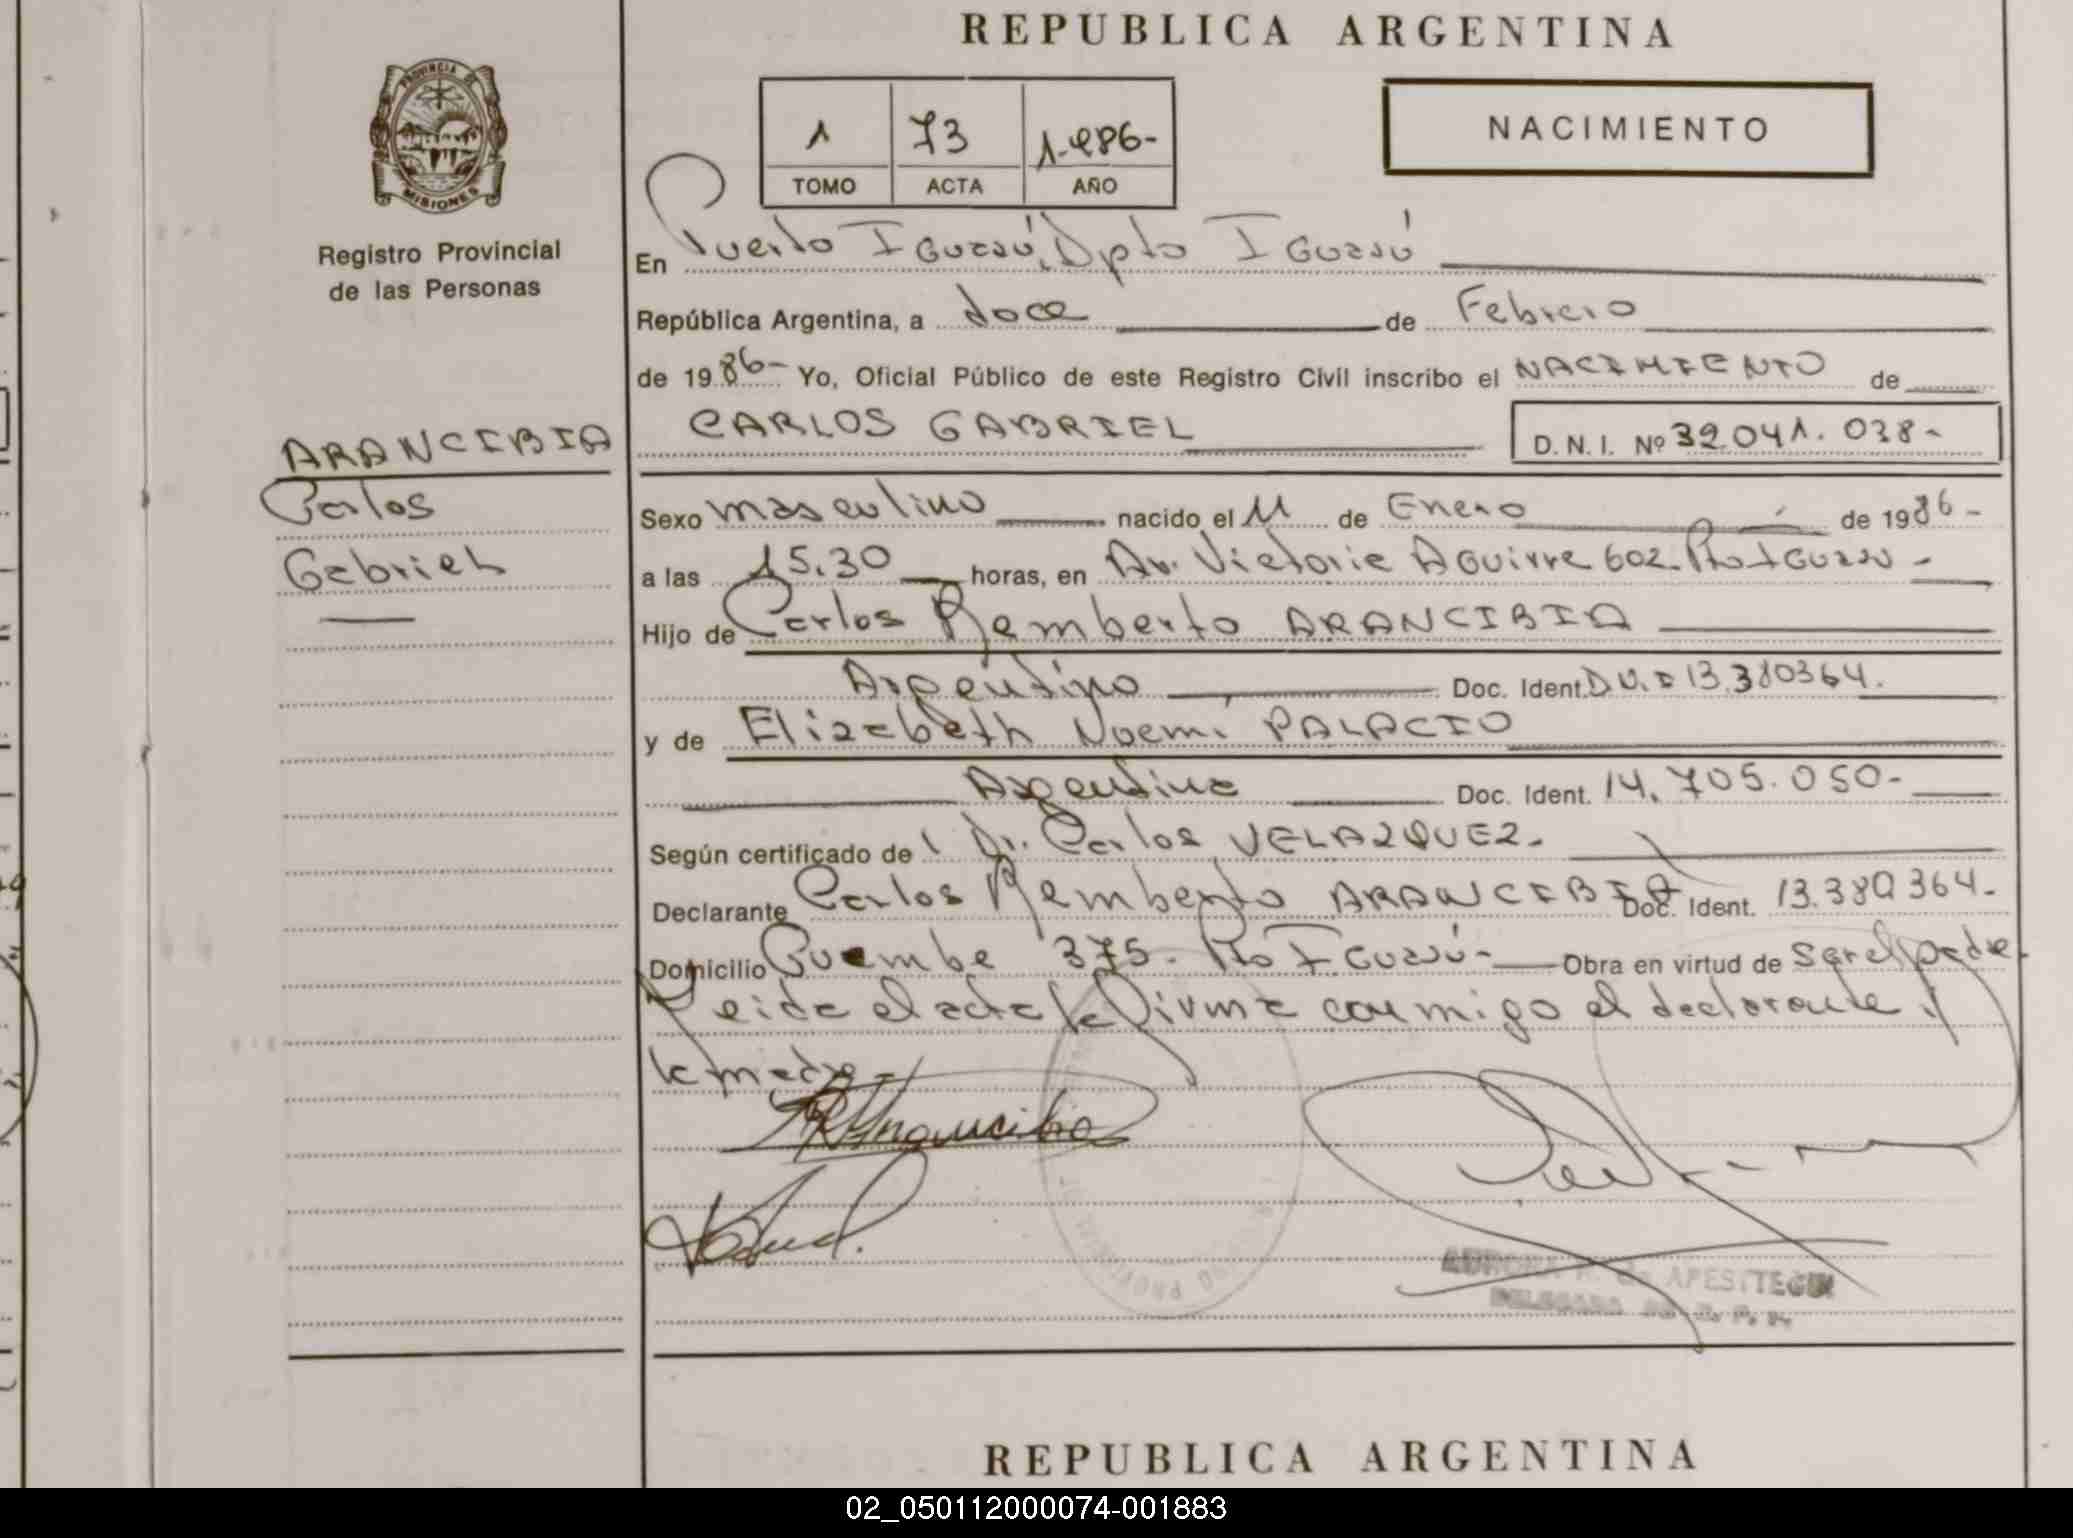 REPUBLICA ARGENTINA
PROVINCIA DE
MISIONES
Registro Provincial
de las Personas
1 73 1.986-
TOMO ACTA AÑO
NACIMIENTO
En Puerto Iguazú, Dpto Iguazú
República Argentina, a doce de Febrero
de 1986- Yo, Oficial Público de este Registro Civil inscribo el NACIMIENTO de
CARLOS GABRIEL D.N.I. Nº 32.041.038-
ARANCIBIA
Carlos
Gabriel
Sexo masculino nacido el 11 de Enero de 1986-
a las 15.30 horas, en Av. Victoria Aguirre 602. Pto Iguazu-
Hijo de Carlos Remberto ARANCIBIA
Argentino Doc. Ident. D.N.I 13.380364.
y de Elizabeth Noemí PALACIO
Argentina Doc. Ident. 14.705.050-
Según certificado de Dr. Carlos VELAZQUEZ.
Declarante Carlos Remberto ARANCIBIA Doc. Ident. 13.380364-
Domicilio Guembe 375. Pto Iguazú- Obra en virtud de ser el padre-
Leida el acta la firma conmigo el declarante y
la madre-
AURORA R. de APESTTEGUI
DELEGADO
REPUBLICA ARGENTINA
02_050112000074-001883